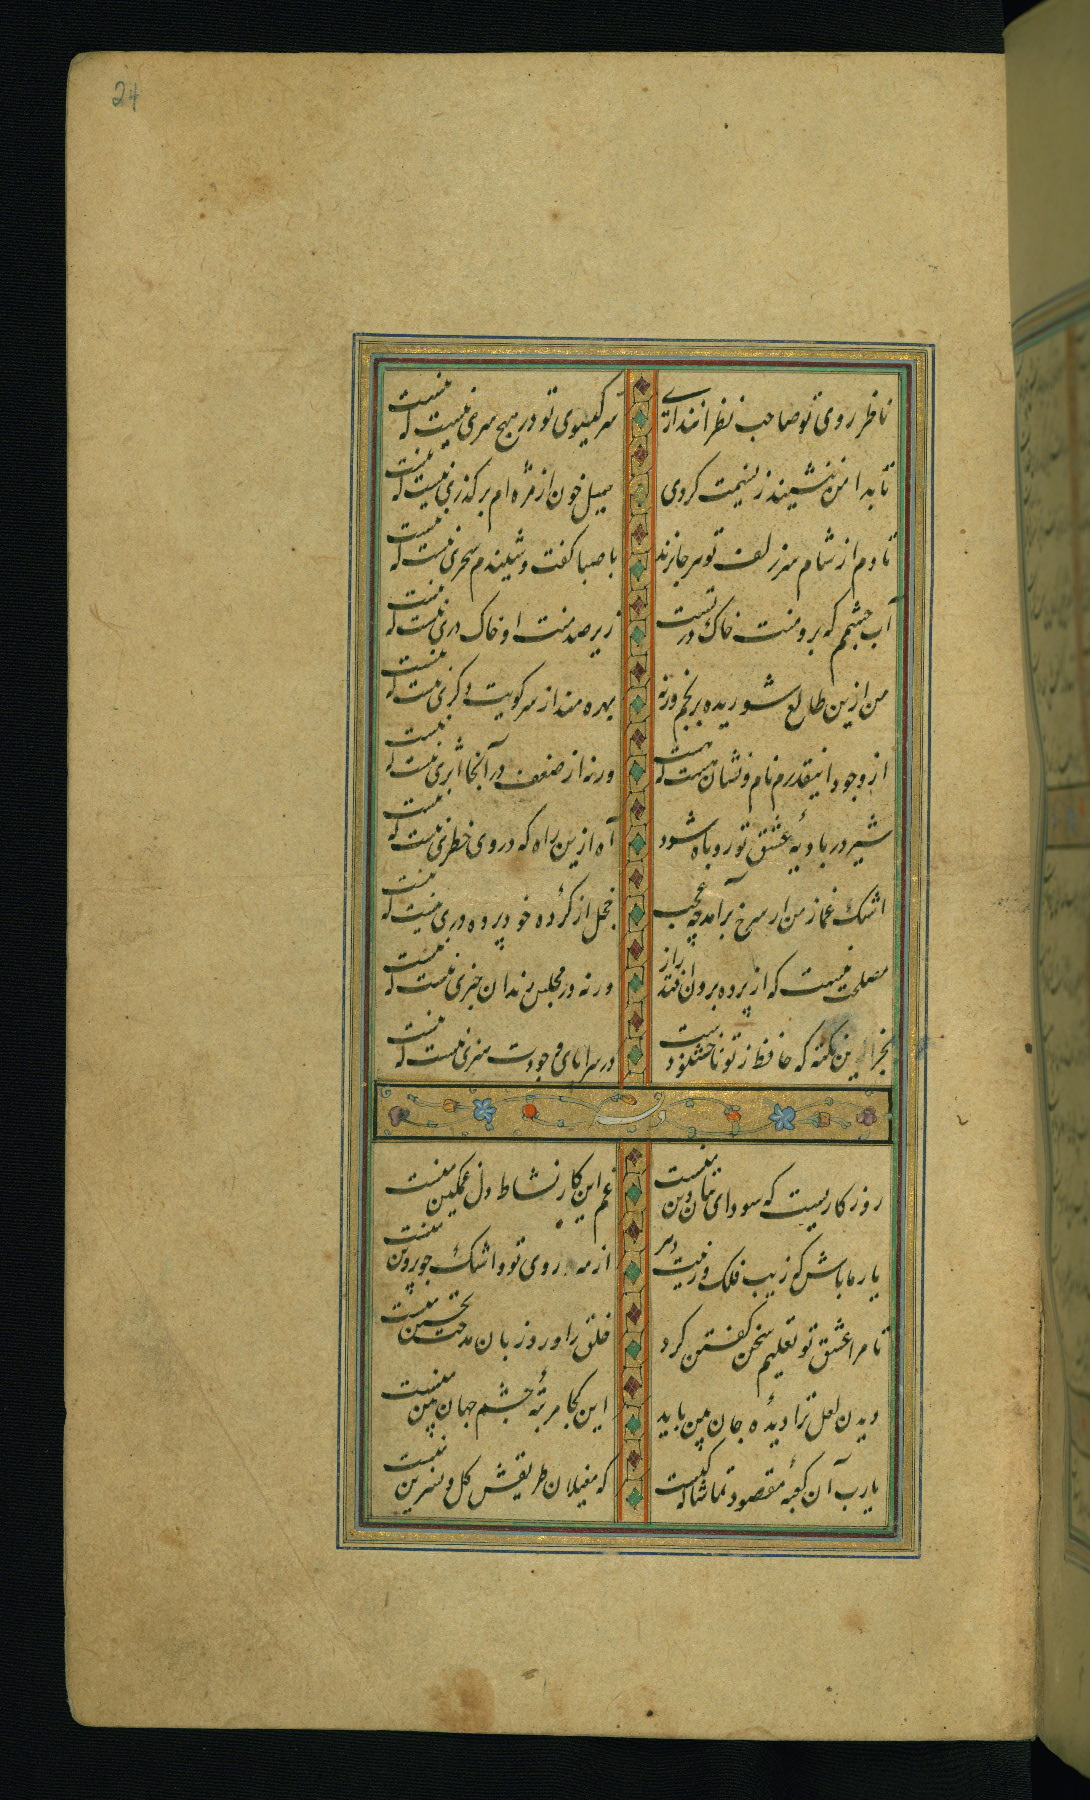 24
ناظر روی تو صاحب نظرانند آری
سر گیسوی تو در هیچ سری نیست که نیست
تا بدامن ننشیند ز نسیمت گردی
سیل خون از مژه ام بر گذری نیست که نیست
تا دم از شام سر زلف تو هر جا نزند
با صبا گفت و شنیدم سحری نیست که نیست
آب چشمم که برو منت خاک در تست
زیر صد منت او خاک دری نیست که نیست
من ازین طالع شوریده برنجم ورنه
بهره مند از سر کویت دگری نیست که نیست
از وجود اینقدرم نام و نشان هست که هست
ورنه از ضعف در آنجا اثری نیست که نیست
شیر در بادیه عشق تو روباه شود
آه ازین راه که در وی خطری نیست که نیست
اشک غماز من ار سرخ برآمد چه عجب
خجل از کرده خود پرده دری نیست که نیست
مصلحت نیست که از پرده برون افتد راز
ورنه در مجلس رندان خبری نیست که نیست
بجز این نکته که حافظ ز تو ناخشنودست
در سراپای وجودت هنری نیست که نیست
روزگاریست که سودای بتان دین منست
غم این کار نشاط دل غمگین منست
یار ما باش که زیب فلک و زینت دهر
از مه روی تو و اشک چو پروین منست
تا مرا عشق تو تعلیم سخن گفتن کرد
خلق را ورد زبان مدحت تحسین منست
دیدن لعل ترا دیده جان بین باید
این کجا مرتبه چشم جهان بین منست
یارب آن کعبه مقصود تماشاگه کیست
که مغیلان طریقش گل و نسرین منست